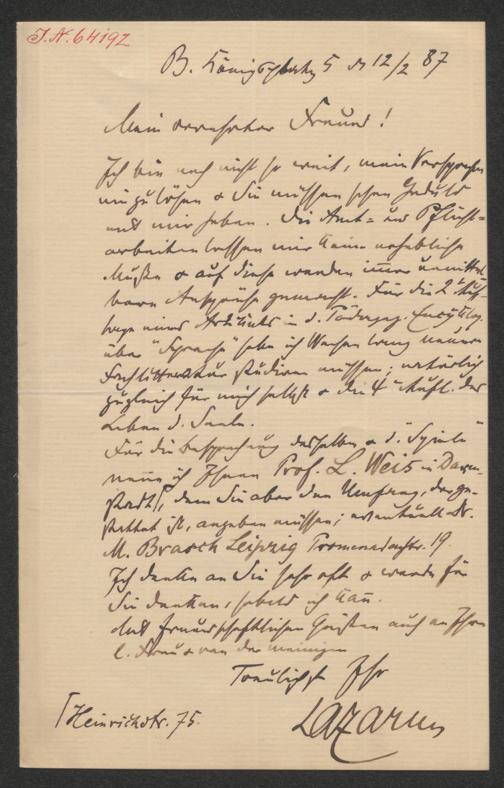 J.N. 64192
B. Königsplatz 5 d 12/2 87
Mein verehrter Freund!
Ich bin noch nicht so weit, mein Versprechen
einzulösen & Sie müssen schon Geduld
mit mir haben. Die Amt- und Pflicht-
arbeiten lassen mir keine erhebliche
Muße & auf diese werden immer
Ansprüche gemacht. Für die 2te Auf-
lage eines Artikels in d. Pädagog. Encyklop.
über "Sprache" habe ich Wochen lang neuere
Fachlitteratur studiren müssen; natürlich
zugleich für mich selbst & die 4te Aufl. des
Leben d. Seele.
Für die Besprechung desselben & d. "Spiele"
nenne ich Ihnen Prof. L. Weis in Darm-
stadt, dem Sie aber den Umfang, der ge-
stattet ist, angeben müssen; eventuell Dr.
M. Brasch Leipzig Promenadenstr. 19
Ich denke an Sie sehr oft & werde für
Sie denken, sobald ich kann.
Mit freundschaftlichen Grüßen auch an Ihre
l. Frau & von der meinigen
Treulichst Ihr
Lazarus
Heinrichstr. 75.